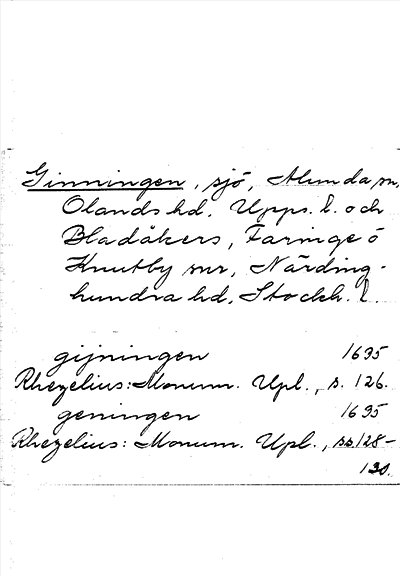 Ginningen, sjö, Alunda sn,
Olands hd, Upps. l. och
Bladåkers, Faringe o
Knutby snr, Närding-
hundra hd, Stockh. l.
gijningen 1635
Rhezelius: Monum. Upl., s. 126.
geningen 1635
Rhezelius: Monum. Upl., ss 128-
130.